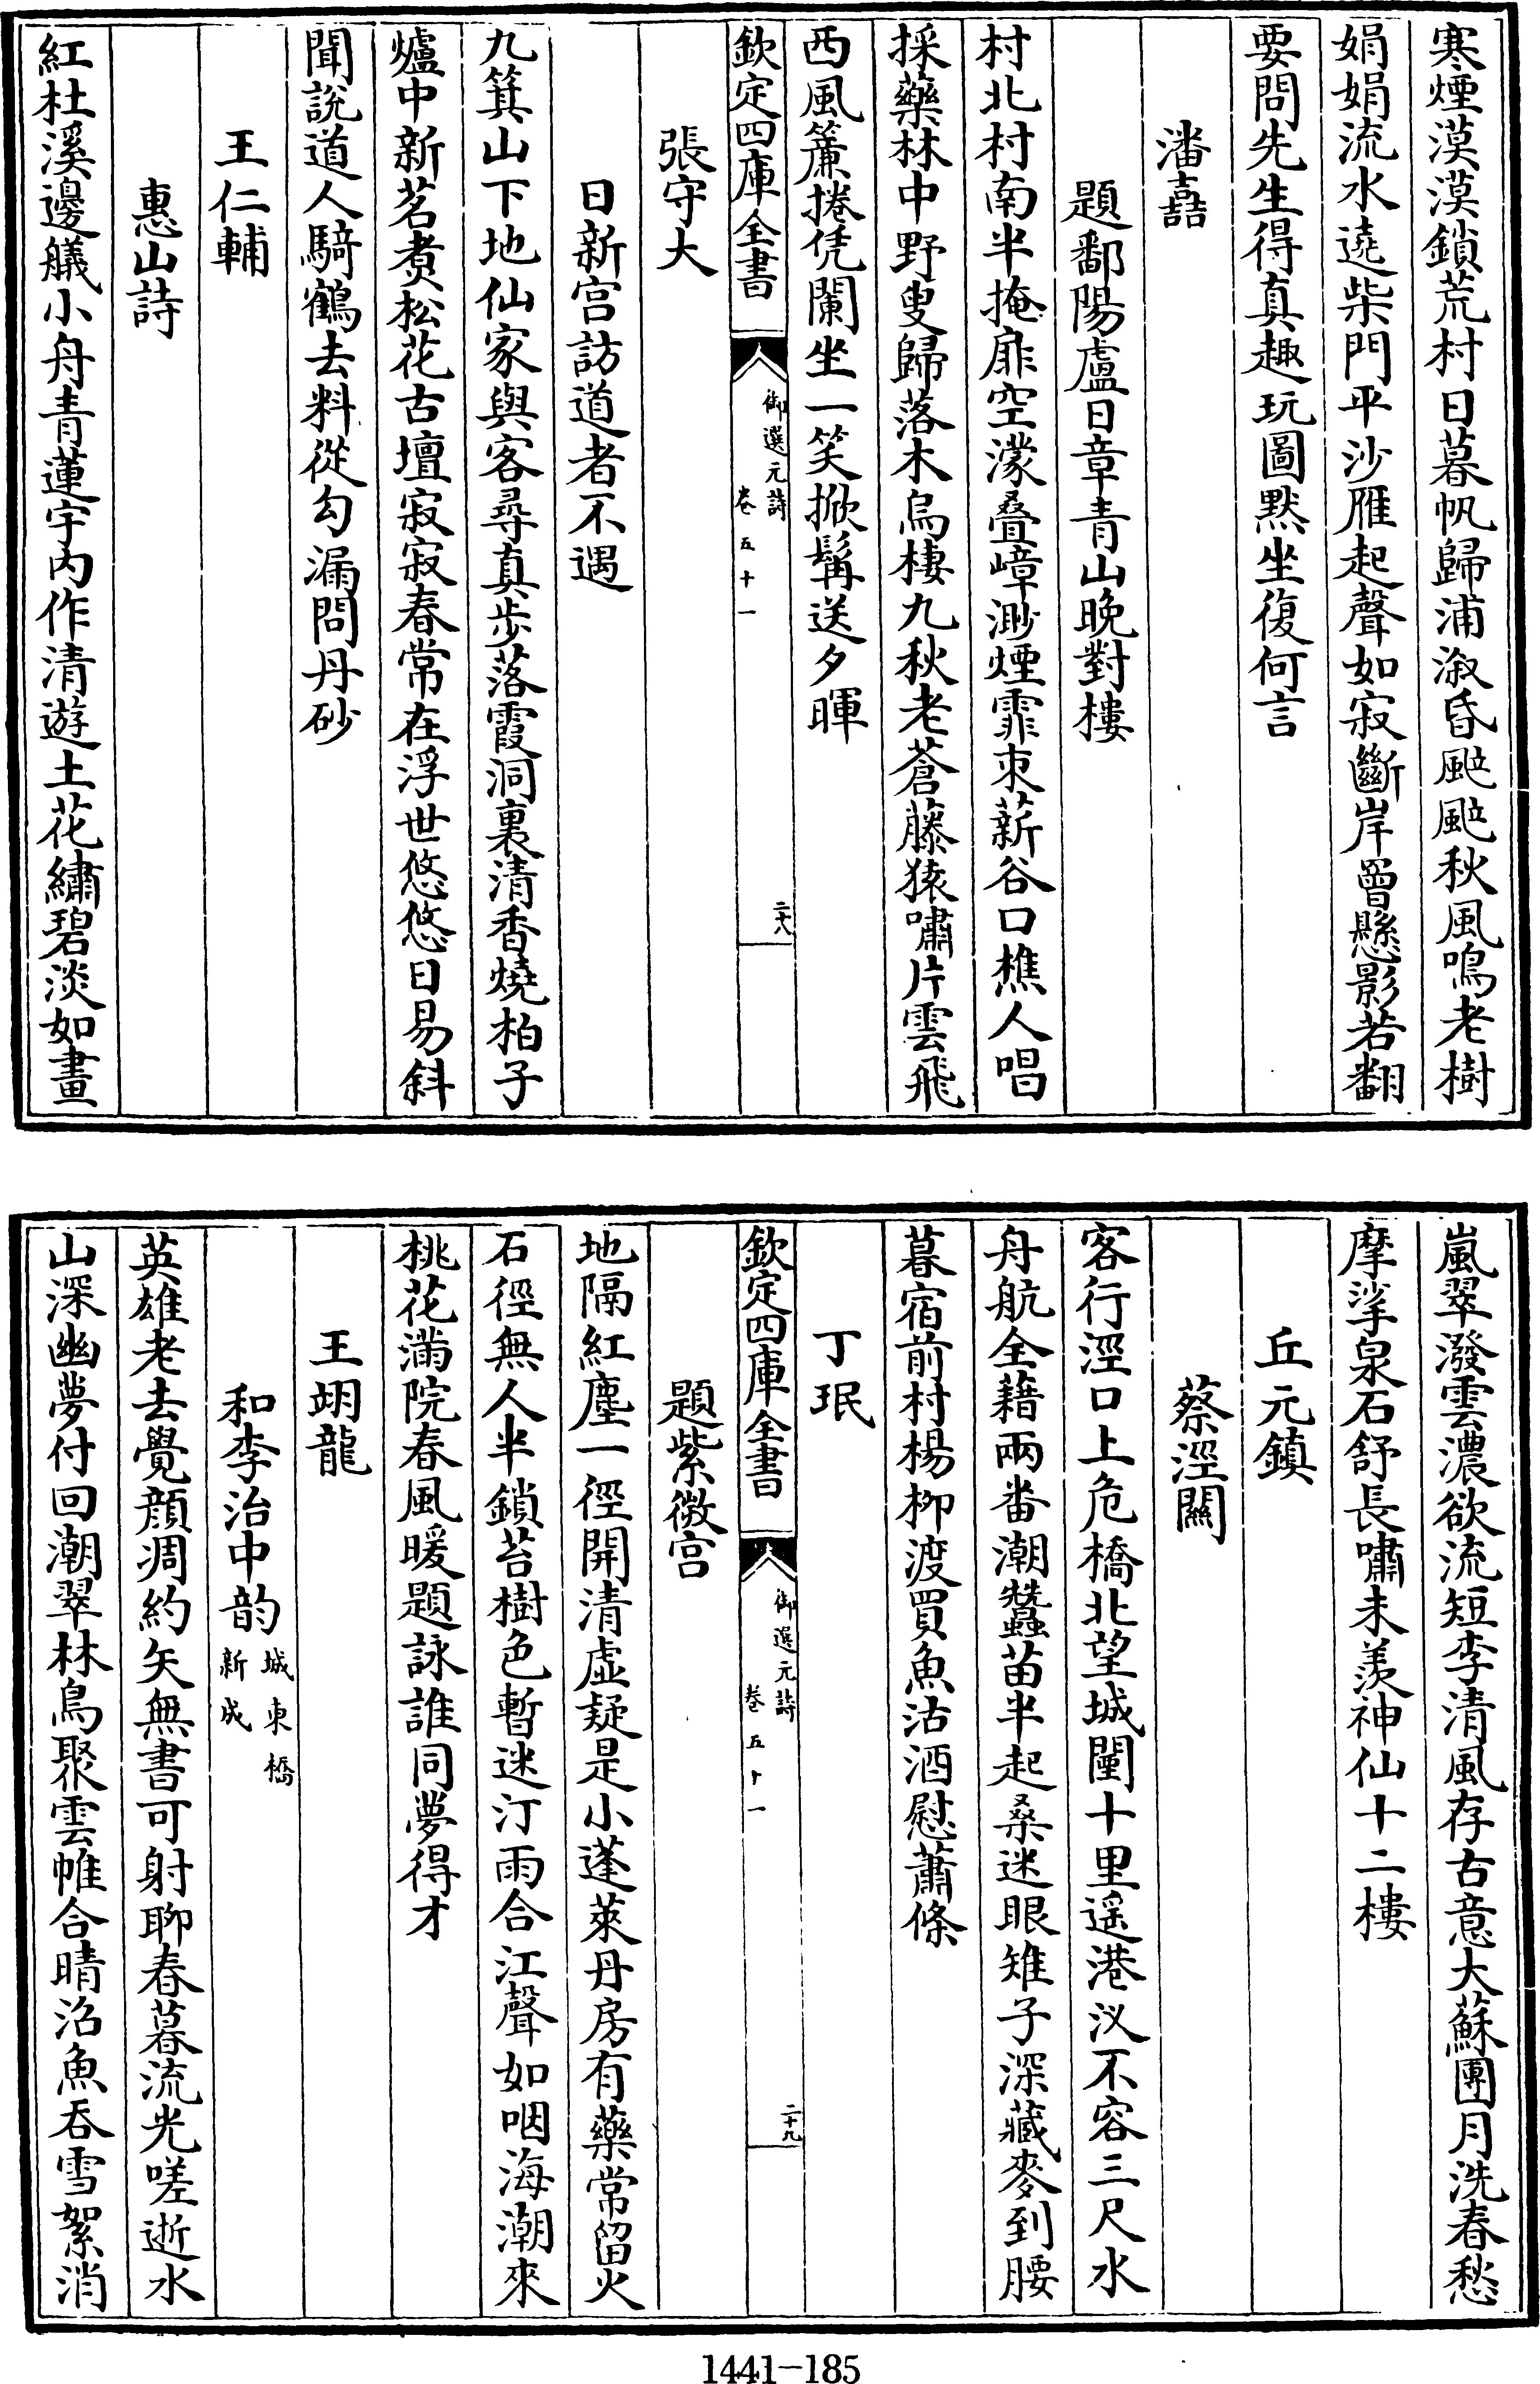 寒煙漠漠鎖荒村日暮帆歸浦溆昏颭颭秋風鳴老樹
娟娟流水遶柴門平沙雁起聲如寂斷岸罾懸影若翻
要問先生得真趣玩圖默坐復何言
潘嚞
題鄱陽盧日章青山晚對樓
村北村南半掩扉空濛疊嶂渺煙霏束薪谷口樵人唱
採藥林中野叟歸落木烏棲九秋老蒼藤猿嘯片雲飛
西風簾捲凭闌坐一笑掀髯送夕暉
欽定四庫全書
御選元詩
卷五十一
二十八
張守大
日新宮訪道者不遇
九箕山下地仙家與客尋真步落霞洞裏清香燒柏子
爐中新茗煮松花古壇寂寂春常在浮世悠悠日易斜
聞說道人騎鶴去料從勾漏問丹砂
王仁輔
惠山詩
紅杜溪邊艤小舟青蓮宇內作清遊土花繡碧淡如畫
嵐翠潑雲濃欲流短李清風存古意大蘇團月洗春愁
摩挲泉石舒長嘯未羨神仙十二樓
丘元鎮
蔡涇闗
客行涇口上危橋北望城闉十里遥港汊不容三尺水
舟航全藉兩番潮蠶苗半起桑迷眼雉子深藏麥到腰
暮宿前村楊柳渡買魚沽酒慰蕭條
丁珉
欽定四庫全書
御選元詩
卷五十一
二十九
題紫微宮
地隔紅塵一徑開清虛疑是小蓬萊丹房有藥常留火
石徑無人半鎖苔樹色暫迷汀雨合江聲如咽海潮來
桃花滿院春風暖題詠誰同夢得才
王翊龍
和李治中韵城東橋新成
英雄老去覺顏凋約矢無書可射聊春暮流光嗟逝水
山深幽夢付回潮翠林鳥聚雲帷合晴沼魚吞雪絮消
1441-185